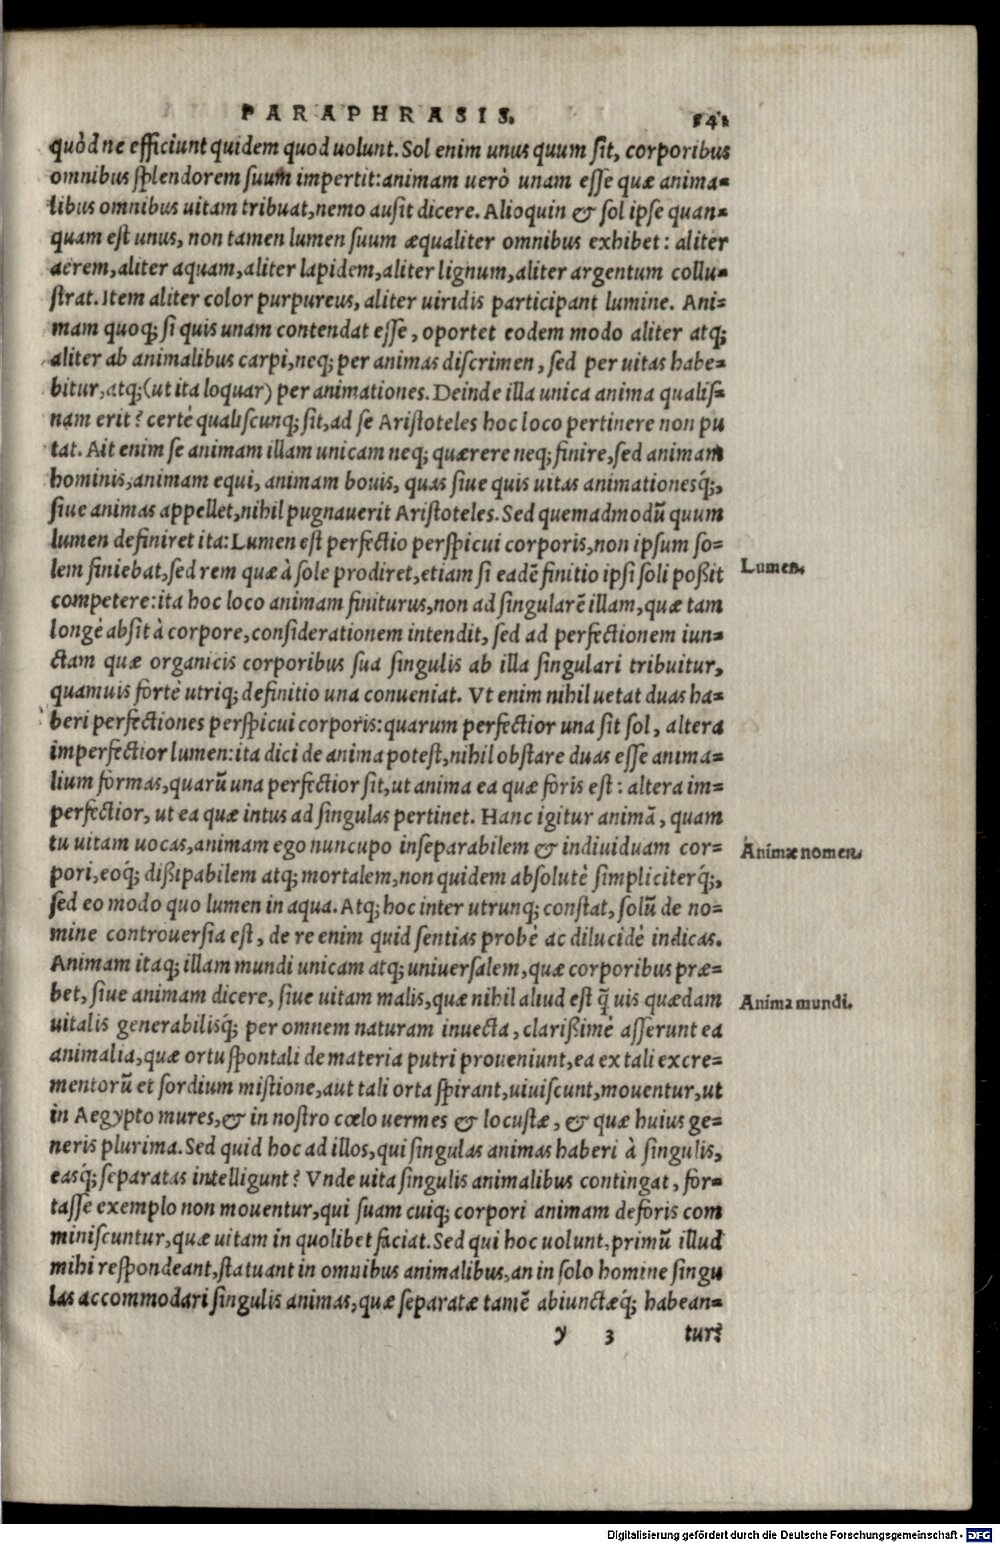 PARAPHRASIS. 141
quòd ne efficiunt quidem quod uolunt. Sol enim unus quum ſit, corporibus
omnibus ſplendorem ſuum impertit: animam uerò unam eſſe quæ anima-
libus omnibus uitam tribuat, nemo auſit dicere. Alioquin & ſol ipſe quan-
quam eſt unus, non tamen lumen ſuum æqualiter omnibus exhibet: aliter
aerem, aliter aquam, aliter lapidem, aliter lignum, aliter argentum collu-
ſtrat. Item aliter color purpureus, aliter uiridis participant lumine. Ani-
mam quoq; ſi quis unam contendat eſſe, oportet eodem modo aliter atq;
aliter ab animalibus carpi, neq; per animas diſcrimen, ſed per uitas habe-
bitur, atq; (ut ita loquar) per animationes. Deinde illa unica anima qualiſ-
nam erit? certè qualiſcunq; ſit, ad ſe Ariſtoteles hoc loco pertinere non pu
tat. Ait enim ſe animam illam unicam neq; quærere neq; finire, ſed animam
hominis, animam equi, animam bouis, quas ſiue quis uitas animationesq́;,
ſiue animas appellet, nihil pugnauerit Ariſtoteles. Sed quemadmodũ quum
lumen definiret ita: Lumen eſt perfectio perſpicui corporis, non ipſum ſo-
lem finiebat, ſed rem quæ à ſole prodiret, etiam ſi eadẽ finitio ipſi ſoli poßit
Lumen.
competere: ita hoc loco animam finiturus, non ad ſingularẽ illam, quæ tam
longè abſit à corpore, conſiderationem intendit, ſed ad perfectionem iun-
ctam quæ organicis corporibus ſua ſingulis ab illa ſingulari tribuitur,
quamuis fortè utriq; definitio una conueniat. Vt enim nihil uetat duas ha-
beri perfectiones perſpicui corporis: quarum perfectior una ſit ſol, altera
imperfectior lumen: ita dici de anima poteſt, nihil obſtare duas eſſe anima-
lium formas, quarũ una perfectior ſit, ut anima ea quæ foris eſt: altera im-
perfectior, ut ea quæ intus ad ſingulas pertinet. Hanc igitur animã, quam
tu uitam uocas, animam ego nuncupo inſeparabilem & indiuiduam cor-
Animæ nomen.
pori, eoq́; dißipabilem atq; mortalem, non quidem abſolutè ſimpliciterq́;,
ſed eo modo quo lumen in aqua. Atq; hoc inter utrunq; conſtat, ſolũ de no-
mine controuerſia eſt, de re enim quid ſentias probè ac dilucidè indicas.
Animam itaq; illam mundi unicam atq; uniuerſalem, quæ corporibus præ-
bet, ſiue animam dicere, ſiue uitam malis, quæ nihil aliud eſt q̃ uis quædam
Anima mundi.
uitalis generabilisq́; per omnem naturam inuecta, clarißimè aſſerunt ea
animalia, quæ ortu ſpontali de materia putri proueniunt, ea ex tali excre-
mentorũ et ſordium miſtione, aut tali orta ſpirant, uiuiſcunt, mouentur, ut
in Aegypto mures, & in noſtro cœlo uermes & locuſtæ, & quæ huius ge-
neris plurima. Sed quid hoc ad illos, qui ſingulas animas haberi à ſingulis,
easq́; ſeparatas intelligunt? Vnde uita ſingulis animalibus contingat, for-
taſſe exemplo non mouentur, qui ſuam cuiq; corpori animam deforis com
miniſcuntur, quæ uitam in quolibet faciat. Sed qui hoc uolunt, primũ illud
mihi reſpondeant, ſtatuant in omnibus animalibus, an in ſolo homine ſingu
las accommodari ſingulis animas, quæ ſeparatæ tamẽ abiunctæq́; habean-
y 3 tur?
Digitalisierung gefördert durch die Deutsche Forschungsgemeinschaft - DFG